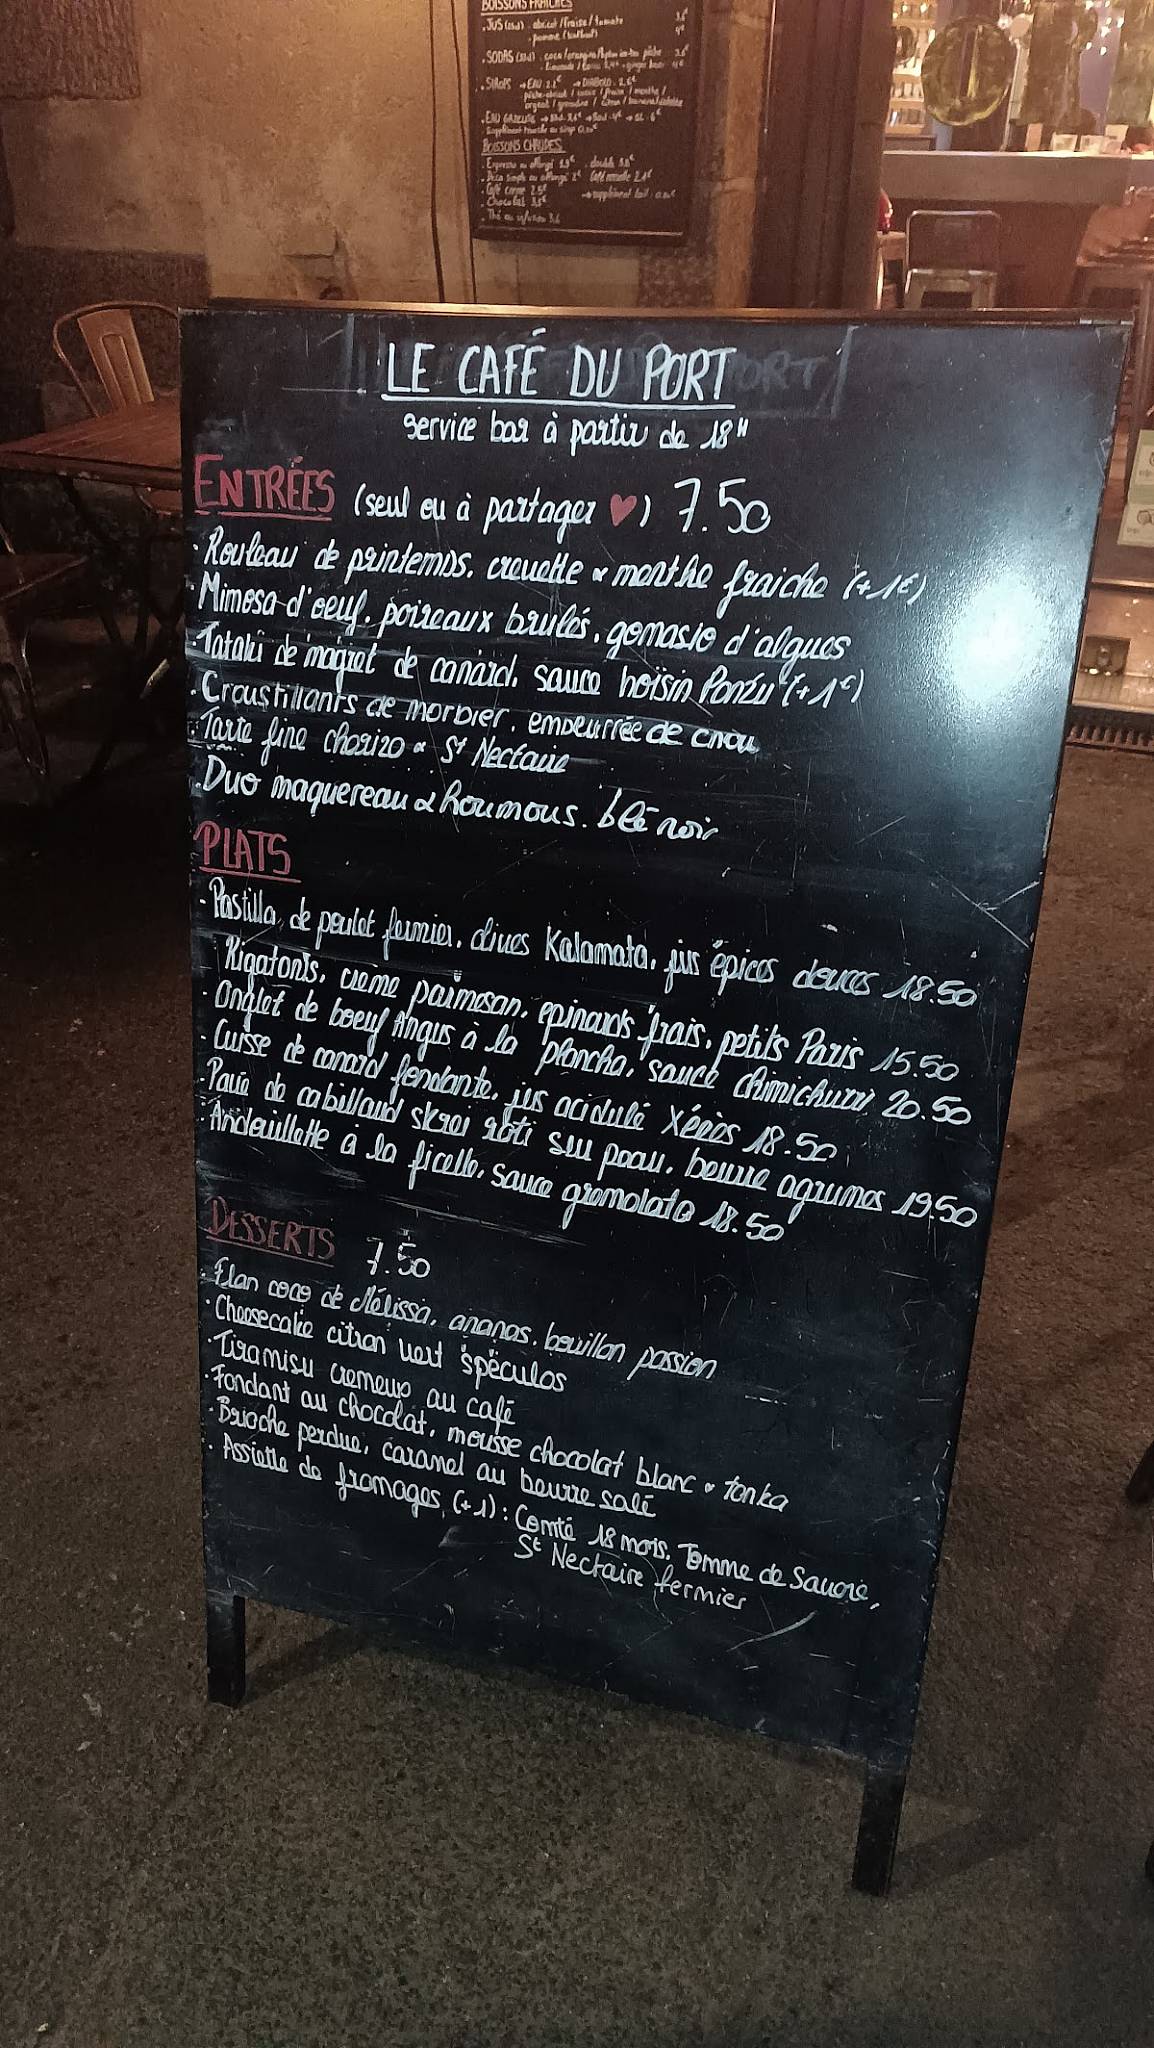 BOISSONS FRAICHES
. JUS (25cl) : abricot / fraise / tomate
. SODAS
. SIROPS → EAU: 2.2€ → DIABOLO: 2.8€
. EAU GAZEUSE
BOISSONS CHAUDES
. Expresso ou allongé . double
. Déca simple ou allongé 2€ Café noisette 2.1€
. Café crème 2.5€ → supplément lait :
. Chocolat 3.5€
. Thé ou infusion 3.6
LE CAFÉ DU PORT
service bar à partir de 18H
ENTRÉES (seul ou à partager ♥) 7.50
. Rouleau de printemps, crevette & menthe fraiche (+1€)
. Mimosa d'oeuf, poireaux brulés, gomasio d'algues
. Tataki de magret de canard, sauce hoisin Ponzu (+1€)
. Croustillants de morbier, embeurrée de chou
. Tarte fine chorizo & St Nectaire
. Duo maquereau & houmous. blé noir
PLATS
. Pastilla de poulet fermier, olives Kalamata, jus épices douces 18.50
Rigatonis, crème parmesan, épinards frais, petits Paris 15.50
. Onglet de boeuf Angus à la plancha, sauce chimichurri 20.50
. Cuisse de canard fondante, jus acidulé Xérès 18.50
. Pavé de cabillaud skrei rôti sur peau, beurre agrumes 19.50
. Andouillette à la ficelle, sauce gremolata 18.50
DESSERTS 7.50
. Flan coco de Mélissa, ananas, bouillon passion
. Cheesecake citron vert spéculos
. Tiramisu cremeux au café
. Fondant au chocolat, mousse chocolat blanc & tonka
. Brioche perdue, caramel au beurre salé
. Assiette de fromages (+1) : Comté 18 mois, Tomme de Savoie,
St Nectaire fermier